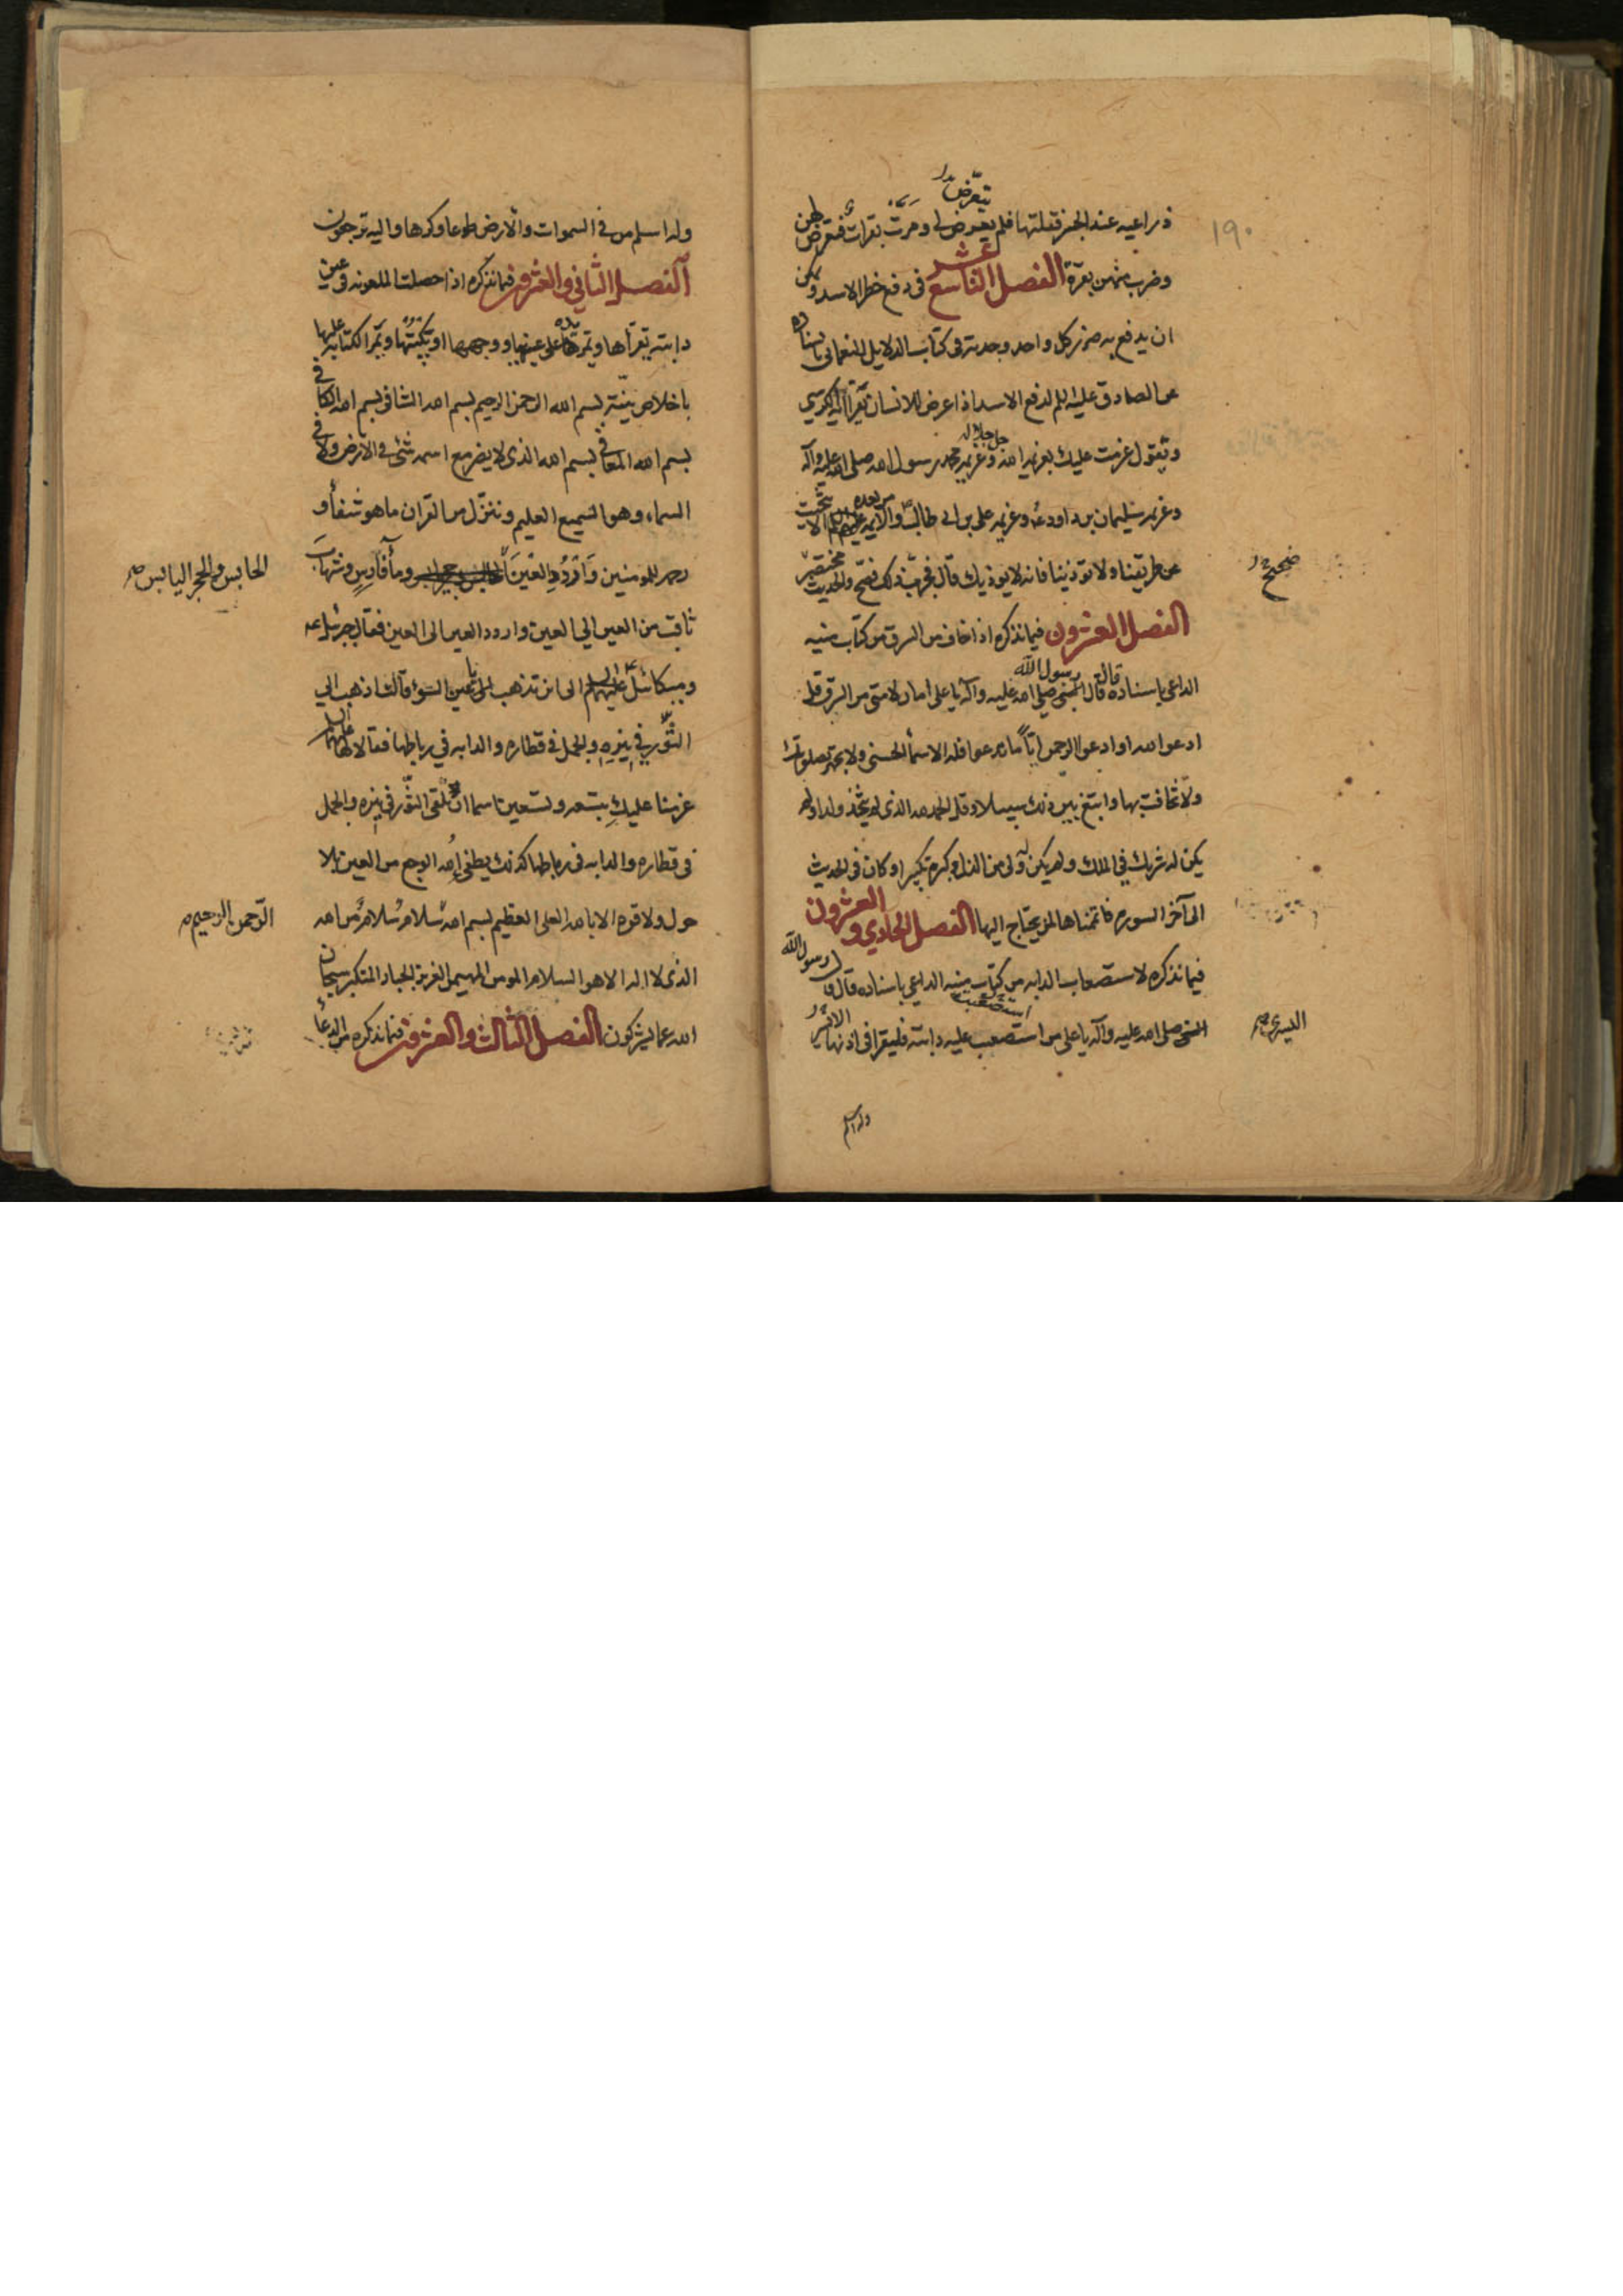 ١٩٠
ذراعيه عند الجنز فقلتها فلم يعرض لي ومرت بقرات فتعرض لهن
يتعرّض
وضرب منهن بقرة الفصل التاسع عشر في دفع خطر الاسد ويمكن
ان يدفع به ضرر كل واحد وجدته في كتاب الدلايل للنعماني باسناده
عن الصادق عليه السلم لدفع الاسد اذا عرض للانسان يقرأ آية الكرسي
ويقول عزمت عليك بعزيمة الله جل جلاله وعزيمة محمد رسول الله صلى الله عليه وآله
وعزيمة سليمان بن داود وعزيمة علي بن ابي طالب والائمة من بعده عليهم السلم الا تنحيت
عن طريقنا ولا تؤذينا فانه لا يوذيك قال فجربت ذلك فصح والحديث مختصر
صحيح
الفصل العشرون فيما نذكره اذا خاف من السرق من كتاب منية
الداعي باسناده قال قال رسول الله النبي صلى الله عليه وآله يا علي امان لامتي من السرق قل
ادعوا الله او ادعوا الرحمن ايّاً ما تدعوا فله الاسمأ الحسنى ولا تجهر بصلوتك
ولا تخافت بها وابتغ بين ذلك سبيلا وقل الحمد لله الذي لم يتخذ ولدا ولم
يكن له شريك في الملك ولم يكن له ولي من الذل وكبره تكبيرا وكان في الحديث
الى آخر السورة فاتممناها لمن يحتاج اليها الفصل الحادي والعشرون
فيما نذكره لاستصعاب الدابه من كتاب منية الداعي باسناده قال قال رسول الله
النبي صلى الله عليه وآله يا علي من استصعب عليه دابته فليقرا في اذنها
استصعبت
اليسرى
وله اسلم
وله اسلم من في السموات والارض طوعا وكرها واليه ترجعون
الفصل الثاني والعشرون فيما نذكره اذا حصلت الملعونه في عين
دابته يقرأها ويمر يده على عينها ووجهها او يكتبها ويمر الكتابة عليها
باخلاص نيّته بسم الله الرحمن الرحيم بسم الله الشافي بسم الله الكافي
بسم الله المعافي بسم الله الذي لا يضر مع اسمه شئ في الارض ولا في
السماء وهو السميع العليم وننزل من القران ما هو شفأ و
رحمة للمومنين واردُد العين ومآ فارس وشهاب
الحابس والحجر اليابس
ثاقب من العين الى العين واردد العين الى العين فقال جبرئيل
وميكائيل عليهما السلم الى اين تذهب يا عين السوء قالت اذهب الى
الثور في نيره والجمل في قطاره والدابه في رباطها فقالا لها عليهما السلم
عزمنا عليك بتسعه وتسعين اسما ان تلقي الثور في نيره والجمل
في قطاره والدابه في رباطها كذلك يطفئ الله الوجع من العين بلا
حول ولا قوه الا بالله العلي العظيم بسم الله سلام سلام من الله
الرّحمن الرحيم
الذي لا اله الا هو السلام المومن المهيمن العزيز الجبار المتكبر سبحان
الله عما يشركون الفصل الثالث والعشرون فيما نذكره من الدعأ